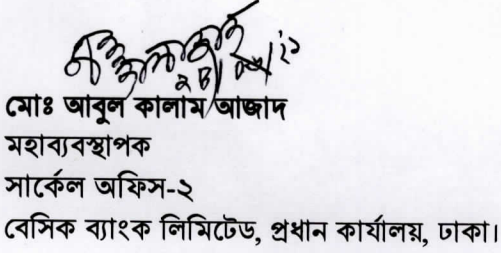 মোঃ আবুল কালাম আজাদ
মহাব্যবস্থাপক
সার্কেল অফিস-২
বেসিক ব্যাংক লিমিটেড, প্রধান কার্যালয়, ঢাকা।